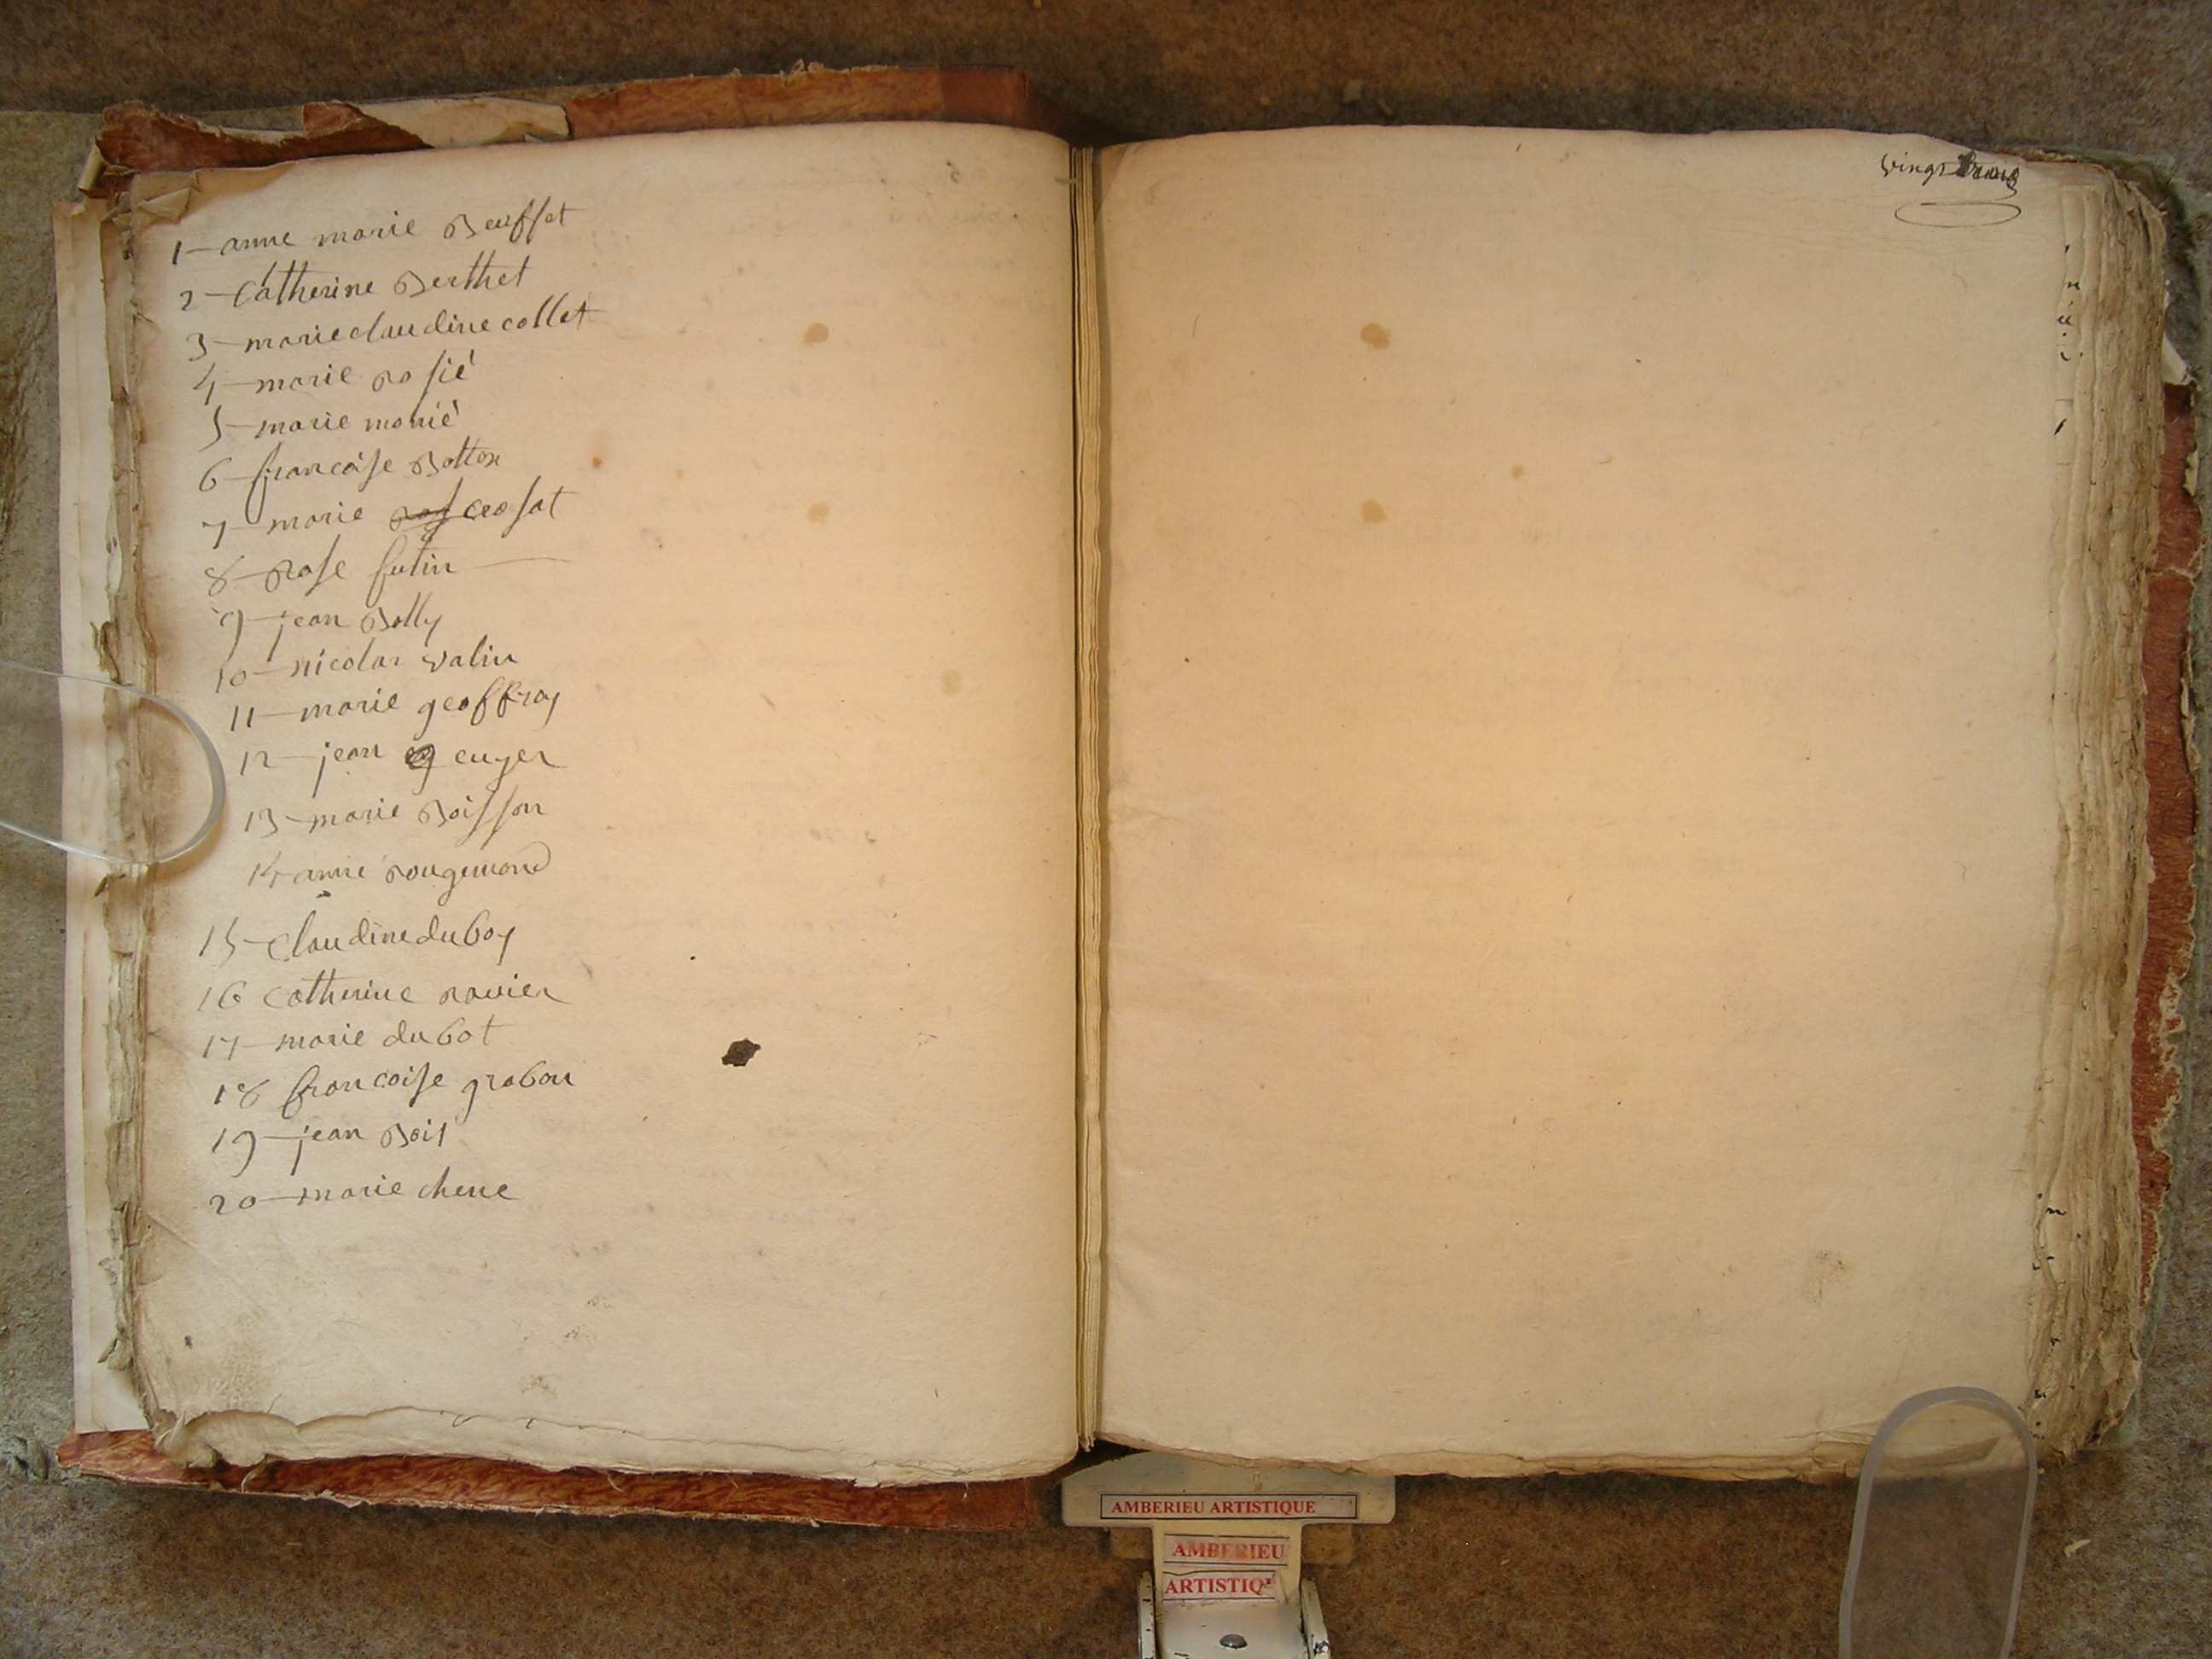 1 - anne marie Beuffet
2 - Catherine Berthet
3 - marie claudine collet
4 - marie rosié
5 - marie monié
6 - francoise Botton
7 - marie crosat
8 - Rose futin
9 - jean Bolly
10 - nicolas valin
11 - marie geoffray
12 - jean euger
13 - marie Boisson
14 anne rougemond
15 - Claudine duboy
16 Catherine ravier
17 - marie dubot
18 francoise grabou
19 - jean Boit
20 - marie chene
vingt
AMBERIEU ARTISTIQUE
AMBERIEU
ARTISTIQ